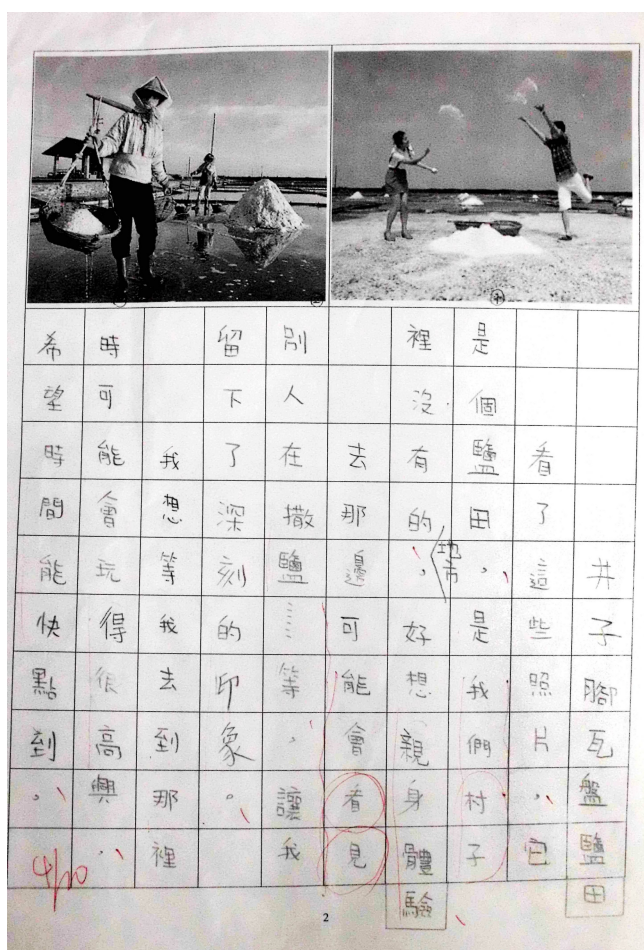 井子腳瓦盤鹽田
看了這些照片,它
是個鹽田,是我們村子
地市
裡沒有的。好想親身體驗
去那邊可能會看見
別人在撒鹽……等,讓我
留下了深刻的印象。
我想等我去到那裡
時可能會玩得很高興,
希望時間能快點到。
4/20
2